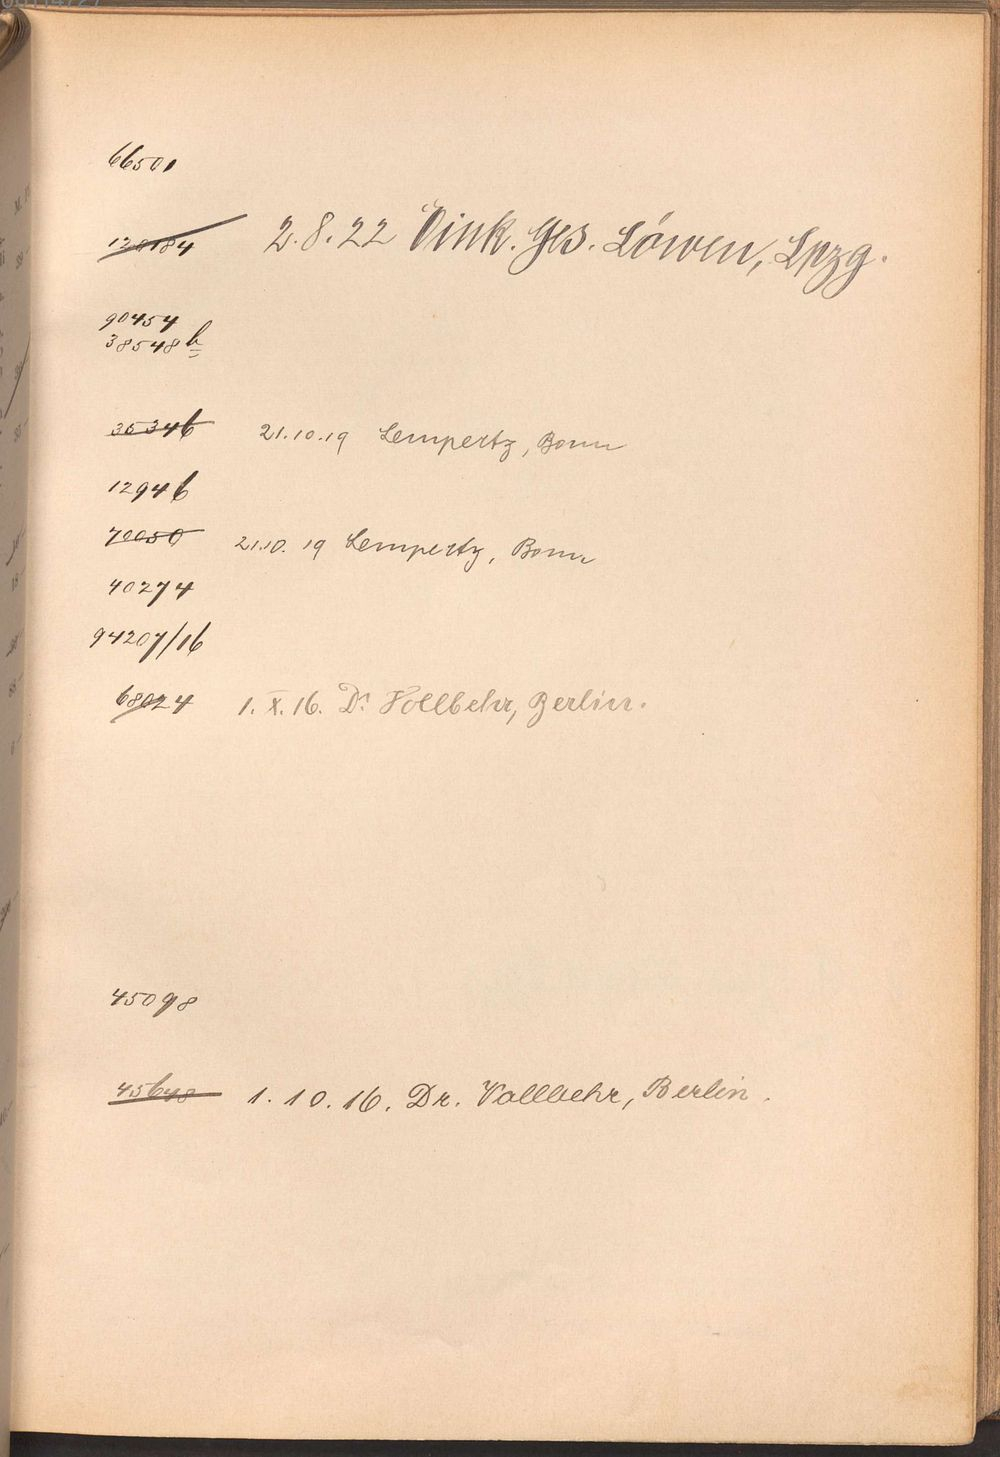 66501
120184 2.8.22 Eink. Ges. Löwen, Lpzg.
90454
38548 b
35346 21.10.19 Lempertz, Bonn
12946
70050 21.10.19 Lempertz, Bonn
40274
94207/16
68024 1. X. 16. Dr. Vollbehr, Berlin.
45098
45648 1. 10. 16. Dr. Vollbehr, Berlin.